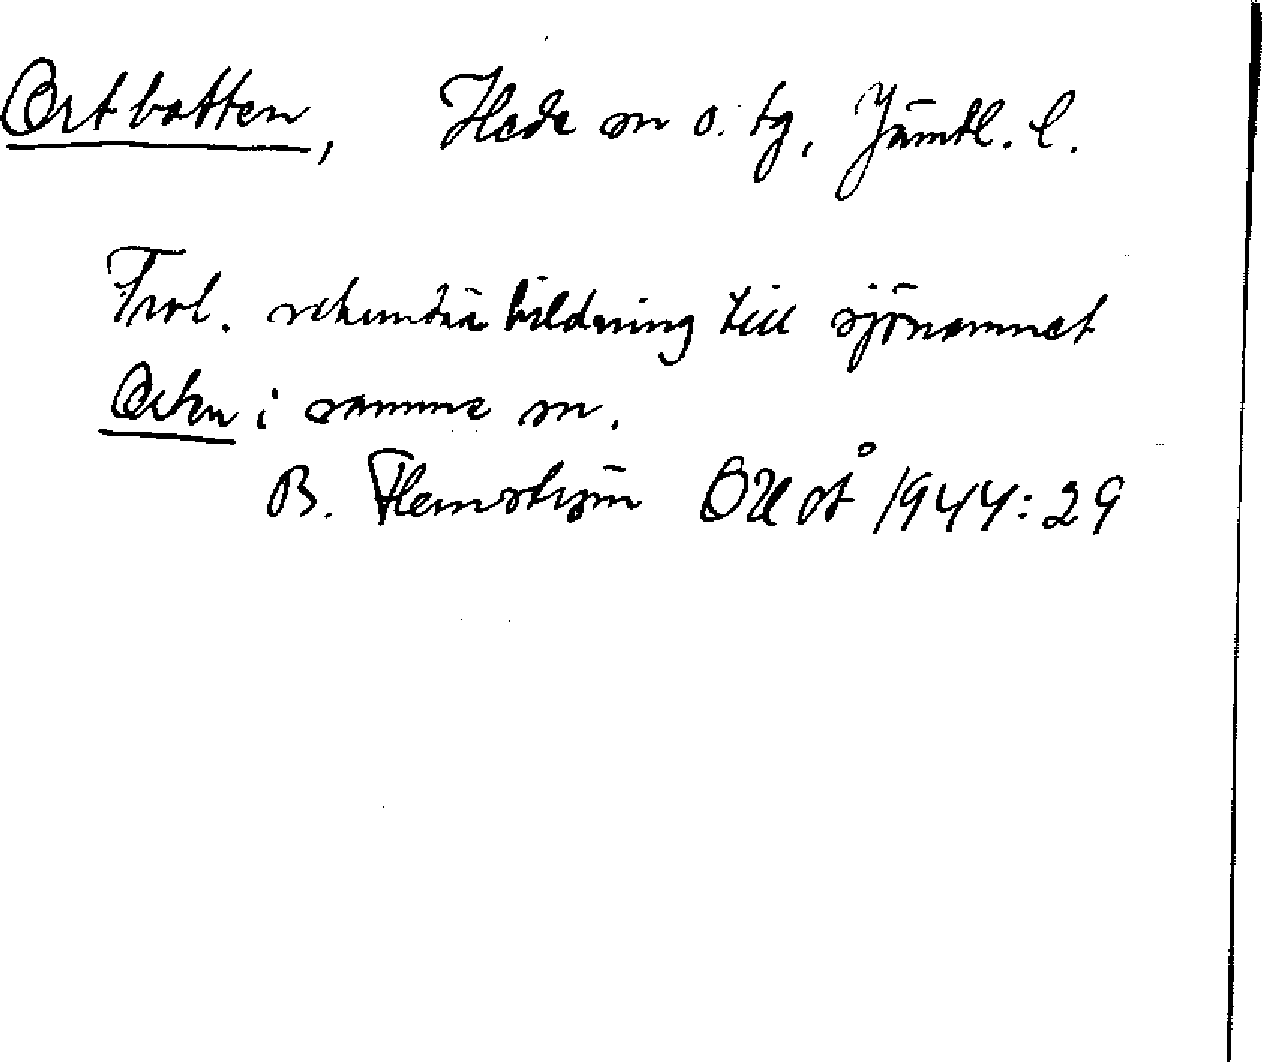 Ortbotten, Hede sn o. tg, Jämtl. l.
Trol. sekundär bildning till sjönamnet
Orten i samma sn.
B. Flemström OUoÅ 1944:29